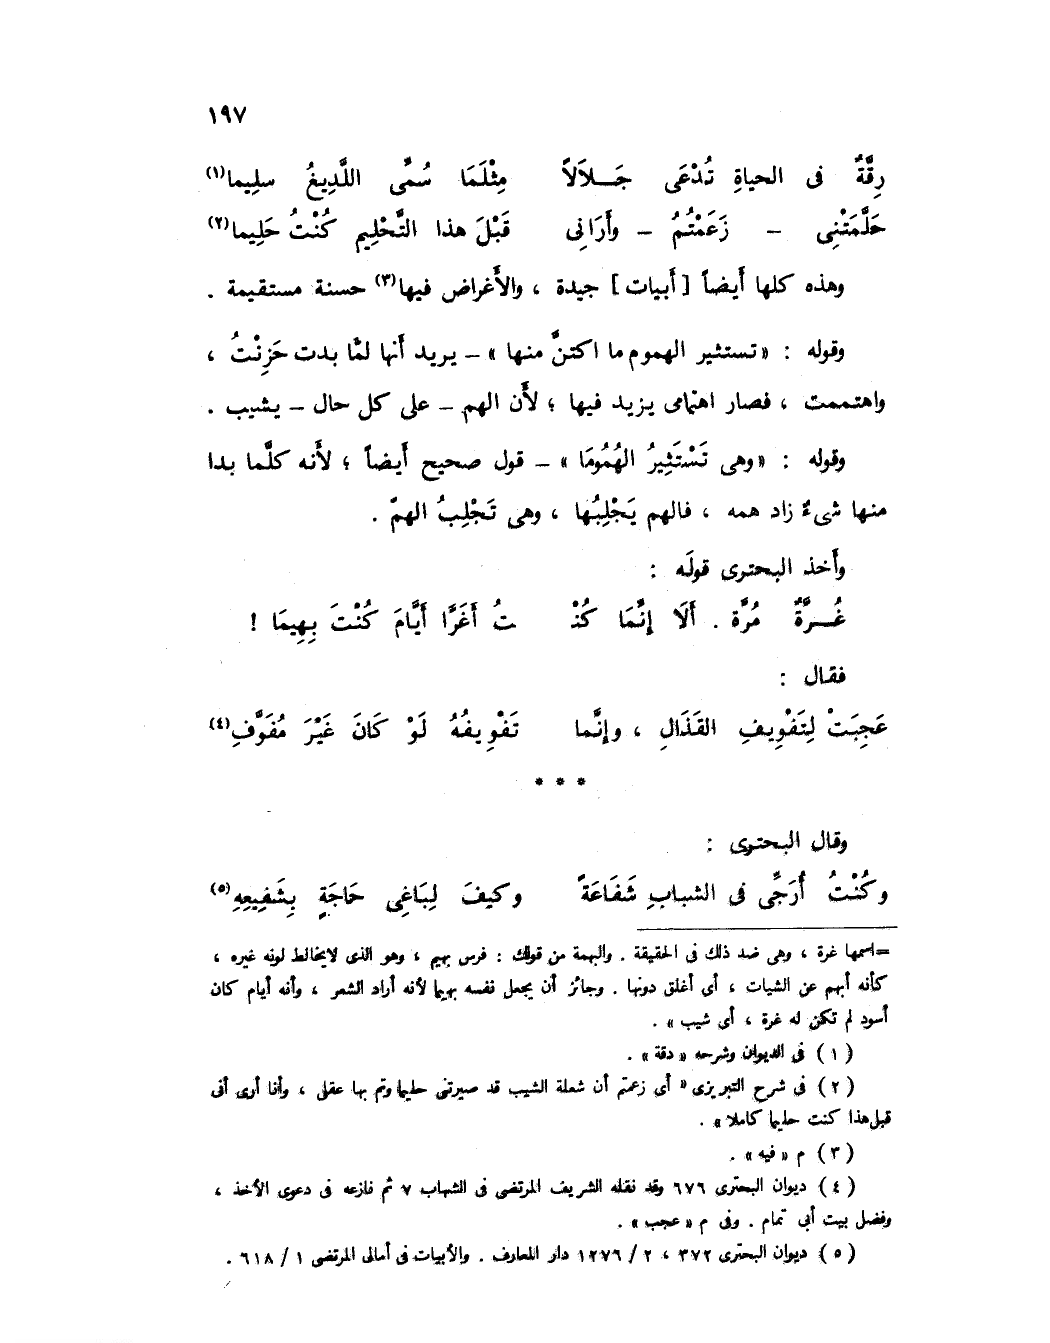 ١٩٧
رِقَّةٌ فى الحياةِ تُدْعَى جَـلاَلاً مِثْلَمَا سُمِّى اللَّدِيغُ سلِيما(١)
حَلَّمَتْنِى – زَعَمْتُمُ – وأَرَانِى قَبْلَ هذا التَّحْلِيمِ كُنْتُ حَلِيما(٢)
وهذه كلها أيضاً [ أبيات ] جيدة ، والأَغراض فيها(٣) حسنة مستقيمة .
وقوله : « تستثير الهموم ما اكتنَّ منها » – يريد أَنها لمَّا بدت حَزِنْتُ ،
واهتممت ، فصار اهتمامى يزيد فيها ؛ لأَن الهم – على كل حال – يشيب .
وقوله : « وهى تَسْتَثِيرُ الهُمُومَا » – قول صحيح أَيضاً ؛ لأَنه كلَّما بدا
منها شىءٌ زاد همه ، فالهم يَجْلِبُها ، وهى تَجْلِبُ الهمّ .
وأَخذ البحترى قولَه :
غُـرَّةٌ مُرَّة . أَلَا إِنَّمَا كُنْـ ـتُ أَغَرًّا أَيَّامَ كُنْتَ بِهِيمَا !
فقال :
عَجِبَتْ لِتَفْوِيفِ القَذَالِ ، وإِنَّما تَفْوِيفُهُ لَوْ كَانَ غَيْرَ مُفَوَّفِ(٤)
* * *
وقال البحترى :
وكُنْتُ أُرَجِّى فى الشبابِ شَفَاعَةً وكيفَ لِبَاغِى حَاجَةٍ بِشَفِيعِهِ(٥)
=اسمها غرة ، وهى ضد ذلك فى الحقيقة . والبهمة من قولك : فرس بهيم ، وهو الذى لايخالط لونه غيره ،
كأنه أبهم عن الشيات ، أى أغلق دونها . وجائز أن يجعل نفسه بهيما لأنه أراد الشعر ، وأنه أيام كان
أسود لم تكن له غرة ، أى شيب » .
( ١ ) فى الديوان وشرحه « دقة » .
( ٢ ) فى شرح التبريزى « أى زعمتم أن شعلة الشيب قد صيرتنى حليما وتم بها عقلى ، وأنا أرى أنى
قبل هذا كنت حليما كاملا » .
( ٣ ) م « فيه » .
( ٤ ) ديوان البحترى ٦٧٦ وقد نقله الشريف المرتضى فى الشهاب ٧ ثم نازعه فى دعوى الأخذ ،
وفضل بيت أبى تمام . وفى م « عجب » .
( ٥ ) ديوان البحترى ٣٧٢ ، ٢ / ١٢٧٦ دار المعارف . والأبيات فى أمالى المرتضى ١ / ٦١٨ .